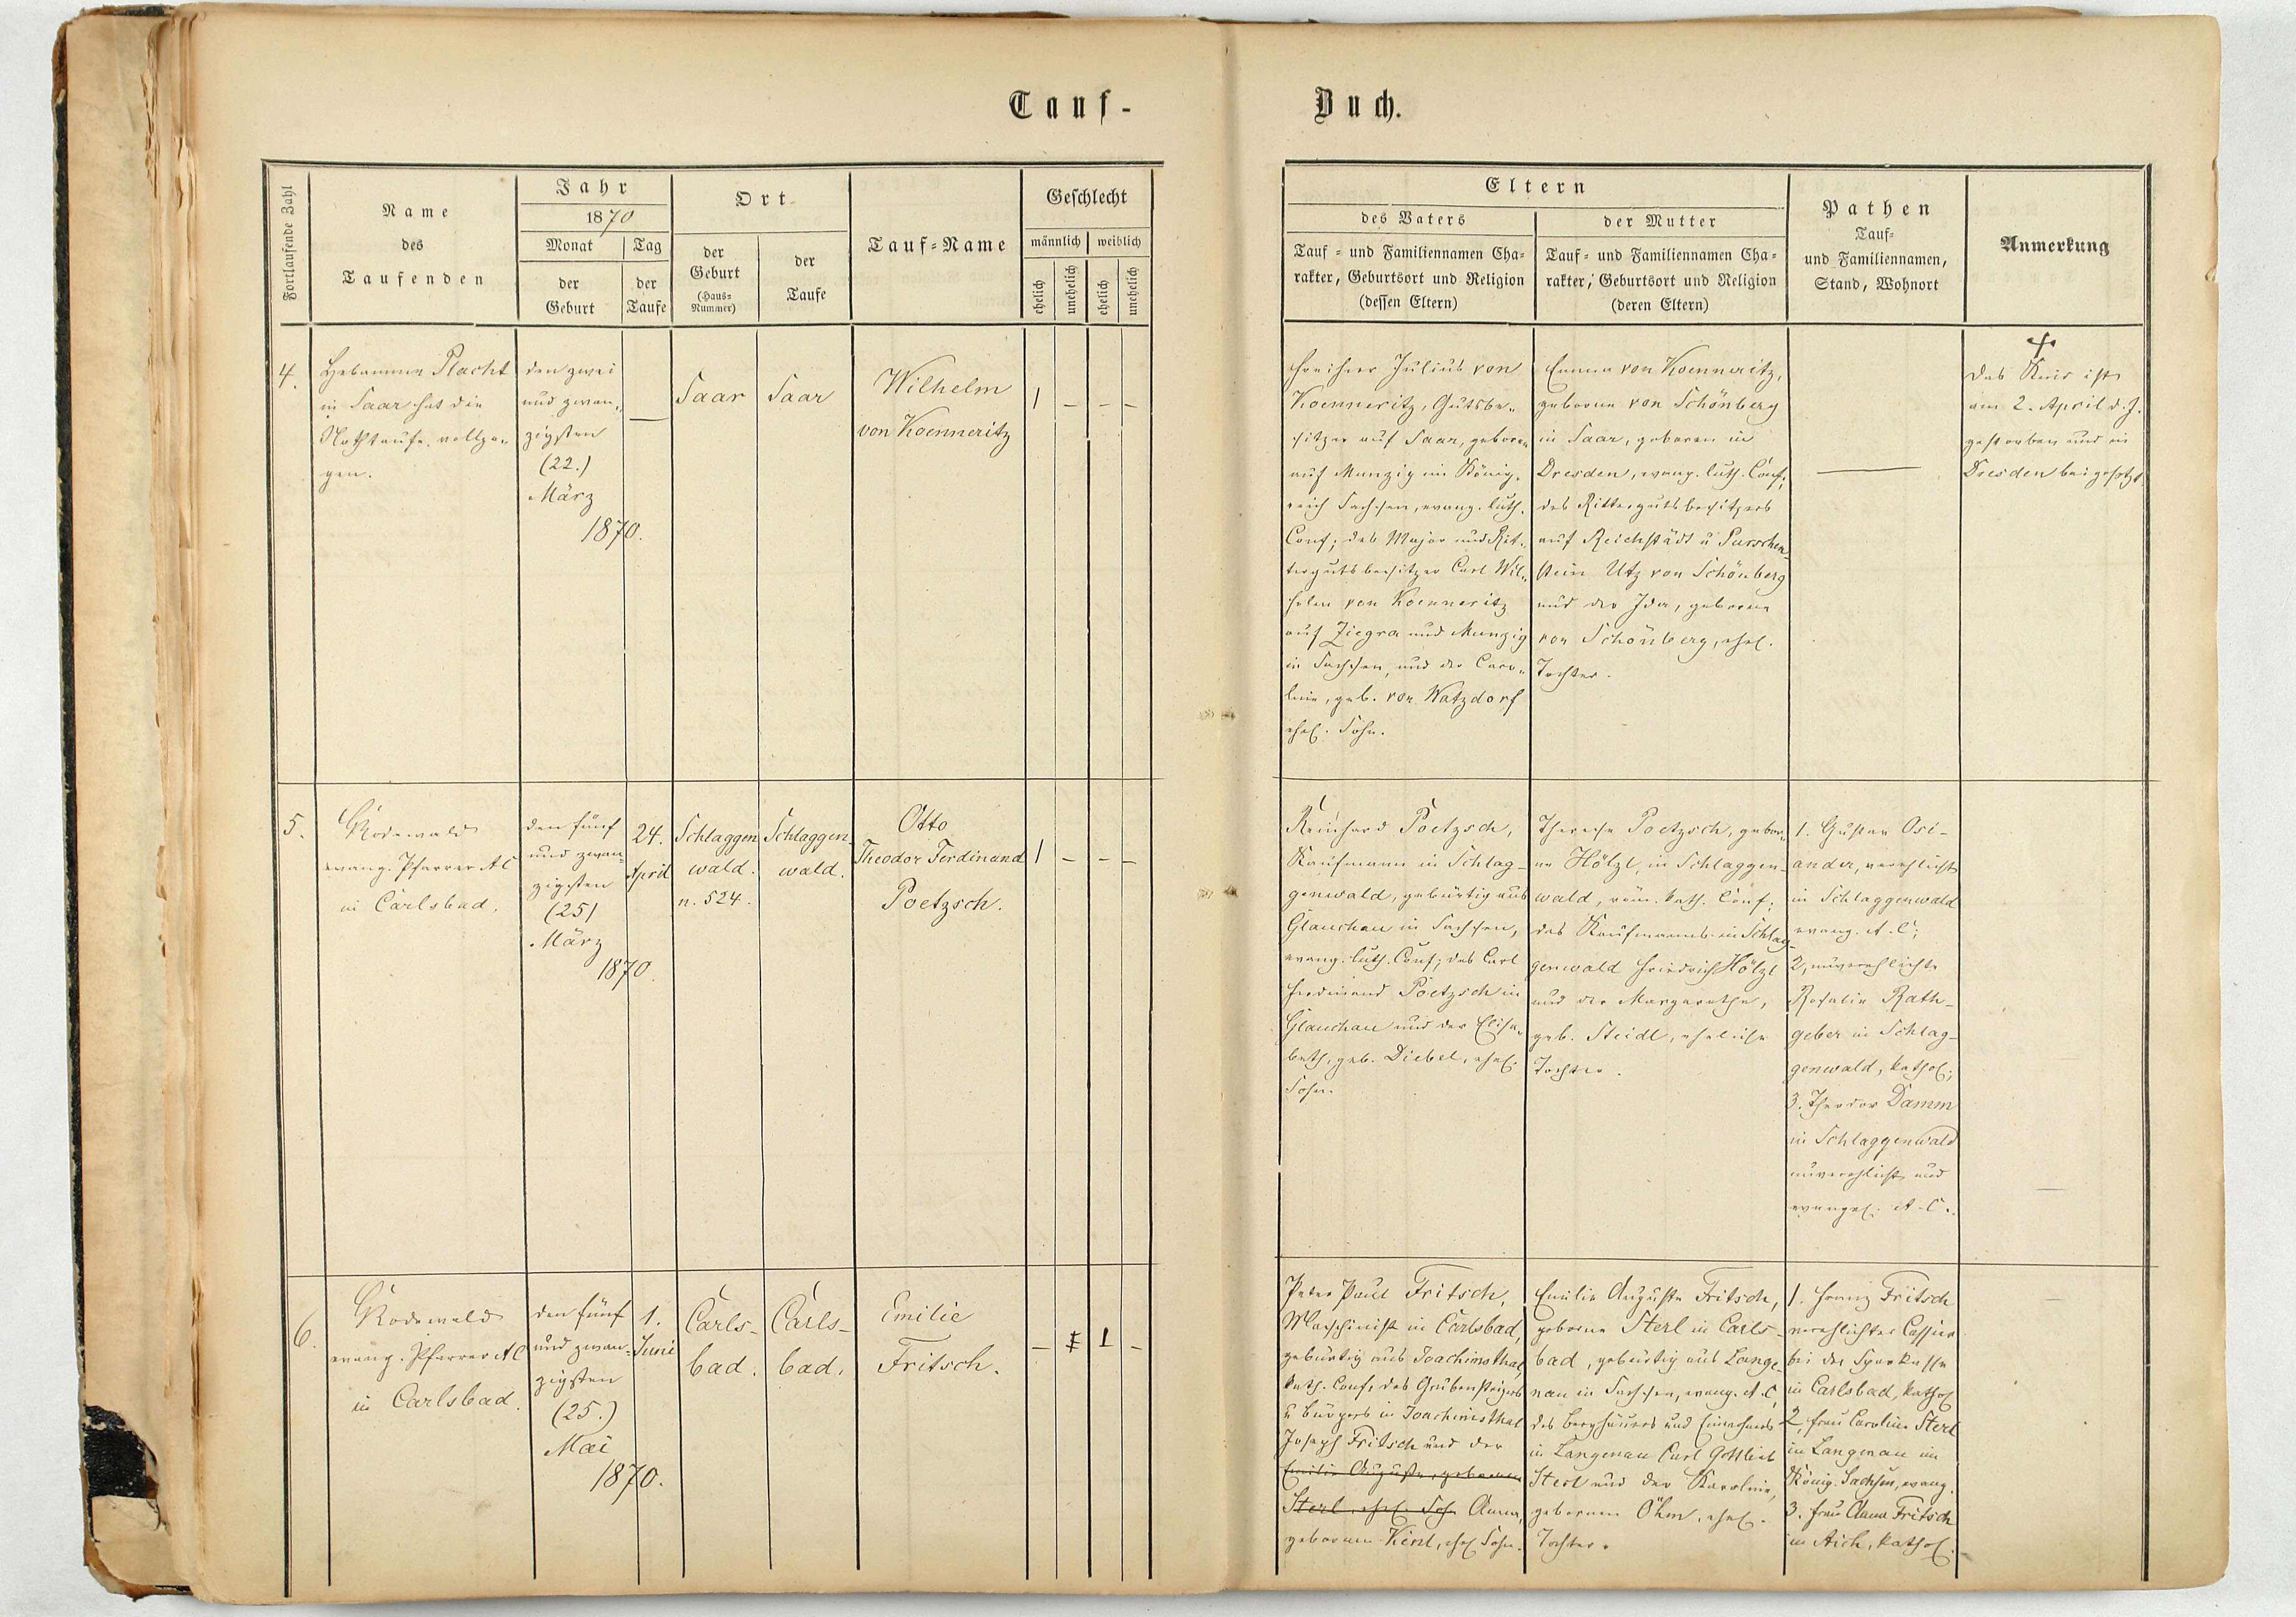 Tauf-
Buch.
Fortlaufende Zahl
Name
des
Taufenden
Jahr
1870
Monat
Tag
der
Geburt
der
Taufe
Ort
der
Geburt
(Haus-
Nummer)
der
Taufe
Tauf-Name
Geschlecht
männlich
weiblich
ehelich
unehelich
ehelich
unehelich
Eltern
des Vaters
Tauf- und Familiennamen Cha-
rakter, Geburtsort und Religion
(dessen Eltern)
der Mutter
Tauf- und Familiennamen Cha-
rakter, Geburtsort und Religion
(deren Eltern)
Pathen
Tauf-
und Familiennamen,
Stand, Wohnort
Anmerkung
4.
Hebamme Placht
in Saar hat die
Nothtaufe vollzo-
gen.
den zwei
und zwan-
zigsten
(22.)
März
1870.
—
Saar
Saar
Wilhelm
von Koenneritz
1
–
–
–
Freiherr Julius von
Koenneritz, Gutsbe-
sitzer auf Saar, geboren
auf Munzig im König-
reich Sachsen, evang. luth.
Conf; des Major und Rit-
tergutsbesitzer Carl Wil-
helm von Koenneritz
auf Ziegra und Munzig
in Sachsen, und der Caro-
line, geb. von Watzdorf
ehel. Sohn.
Emma von Koenneritz,
geborne von Schönberg
in Saar, geboren in
Dresden, evang. luth. Conf,
des Rittergutsbesitzers
auf Reichstädt u Purschen-
stein Utz von Schönberg
und der Ida, geborne
von Schönberg, ehel.
Tochter.
—
†
Das Kind ist
am 2. April d. J.
gestorben und in
Dresden beigesetzt.
5.
Rodewald
evang. Pfarrer A C
in Carlsbad.
den fünf
und zwan-
zigsten
(25)
März
1870.
24.
April
Schlaggen
wald.
n. 524.
Schlaggen-
wald.
Otto
Theodor Ferdinand
Poetzsch.
1
–
–
–
Reinhard Poetzsch,
Kaufmann in Schlag-
genwald, gebürtig aus
Glauchau in Sachsen,
evang. luth. Conf; des Carl
Ferdinand Poetzsch in
Glauchau und der Elisa-
beth, geb. Diebel, ehel.
Sohn.
Therese Poetzsch, gebor-
ne Hölzl, in Schlaggen-
wald, röm. kath. Conf;
des Kaufmanns in Schlag-
genwald Friedrich Hölzl
und der Margarethe,
geb. Steidl, eheliche
Tochter.
1. Gustav Osi-
ander, verehlicht
in Schlaggenwald
evang. A. C;
2, unverehlichte
Rosalie Rath-
geber in Schlag-
genwald, kathol;
3. Theodor Damm
in Schlaggenwald
unverehlicht und
evangel. A. C.
—
6.
Rodewald
evang. Pfarrer A C
in Carlsbad.
den fünf
und zwan-
zigsten
(25.)
Mai
1870.
1.
Juni
Carls-
bad.
Carls-
bad.
Emilie
Fritsch.
–
1
–
Peter Paul Fritsch,
Maschinist in Carlsbad,
gebürtig aus Joachimsthal,
kath. Conf, des Grubensteigers
u Bürgers in Joachimsthal
Joseph Fritsch und der
Emilie Auguste, geborenen
Sterl, ehel. Soh. Anna,
gebornen Kent, ehel Sohn.
Emilie Auguste Fritsch,
geborne Sterl in Carls-
bad, gebürtig aus Lange-
nau in Sachsen, evang. A. C,
des Berghäuers und Einwohners
in Langenau Carl Gottlieb
Sterl und der Karoline,
gebornen Öhm, ehel.
Tochter.
1. Franz Fritsch
verehlichter Cassier
bei der Sparkasse
in Carlsbad, kathol
2, Frau Caroline Sterl
in Langenau im
König. Sachsen, evang.
3. Frau Anna Fritsch
in Aich, kathol.